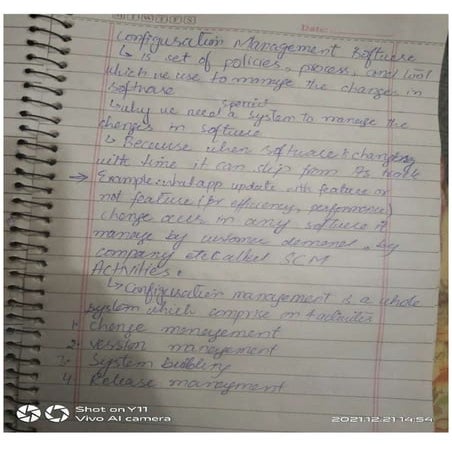 Date:
Configusation Management Software
↳ is set of policies, process, and tool
which we use to manage the changes in
software
↳ why we need a special system to manage the
changes in software
↳ Because when software is changing
with time it can slip from its track
→ Example: whatapp update with feature or
not feature (for efficiency, performance)
change occurs in any software it
manage by customer demand, by
company etc called SCM
Activities:
↳ Configusation management is a whole
system which comprise on 4 activities
1. change menegement
2. vession management
3. System building
4. Release management
Shot on Y11
Vivo AI camera
2021.12.21 14:54